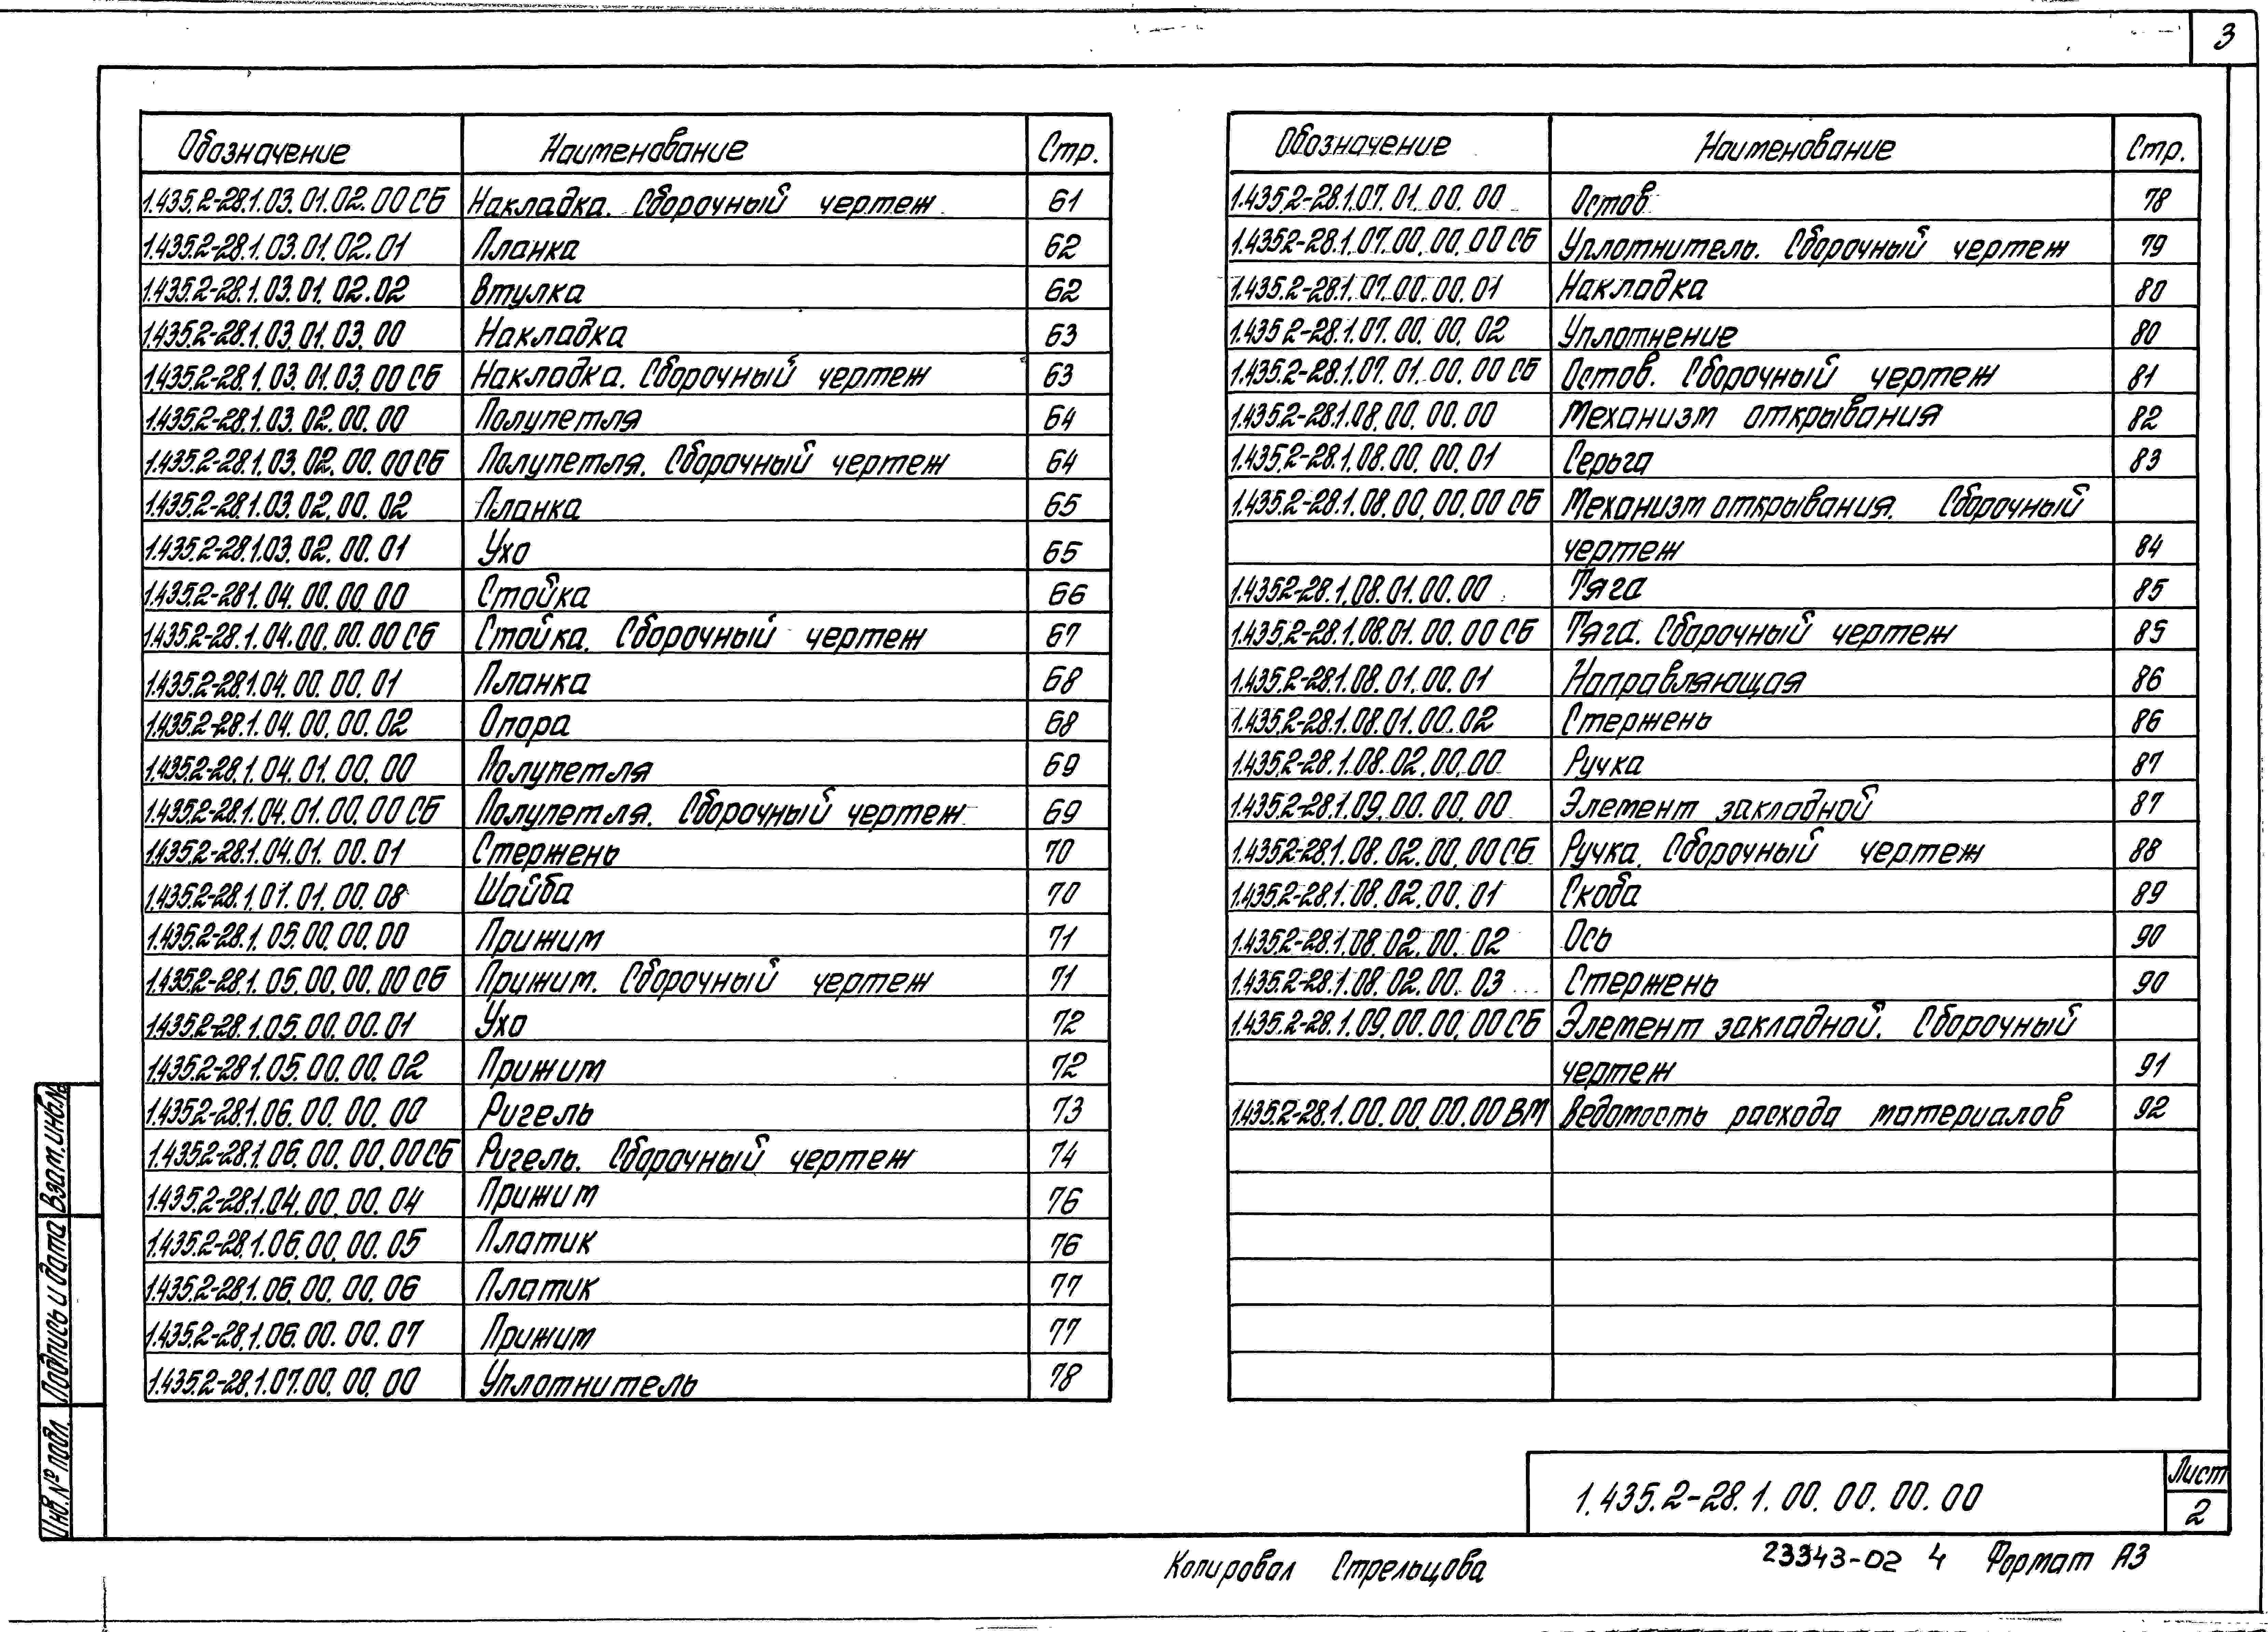 3
Обозначение Наименование Стр.
1.435.2-28.1.03.01.02.00СБ Накладка. Сборочный чертеж 61
1.435.2-28.1.03.01.02.01 Планка 62
1.435.2-28.1.03.01.02.02 Втулка 62
1.435.2-28.1.03.01.03.00 Накладка 63
1.435.2-28.1.03.01.03.00СБ Накладка. Сборочный чертеж 63
1.435.2-28.1.03.02.00.00 Полупетля 64
1.435.2-28.1.03.02.00.00СБ Полупетля. Сборочный чертеж 64
1.435.2-28.1.03.02.00.02 Планка 65
1.435.2-28.1.03.02.00.01 Ухо 65
1.435.2-28.1.04.00.00.00 Стойка 66
1.435.2-28.1.04.00.00.00СБ Стойка. Сборочный чертеж 67
1.435.2-28.1.04.00.00.01 Планка 68
1.435.2-28.1.04.00.00.02 Опора 68
1.435.2-28.1.04.01.00.00 Полупетля 69
1.435.2-28.1.04.01.00.00СБ Полупетля. Сборочный чертеж 69
1.435.2-28.1.04.01.00.01 Стержень 70
1.435.2-28.1.07.01.00.08 Шайба 70
1.435.2-28.1.05.00.00.00 Прижим 71
1.435.2-28.1.05.00.00.00СБ Прижим. Сборочный чертеж 71
1.435.2-28.1.05.00.00.01 Ухо 72
1.435.2-28.1.05.00.00.02 Прижим 72
1.435.2-28.1.06.00.00.00 Ригель 73
1.435.2-28.1.06.00.00.00СБ Ригель. Сборочный чертеж 74
1.435.2-28.1.04.00.00.04 Прижим 76
1.435.2-28.1.06.00.00.05 Платик 76
1.435.2-28.1.06.00.00.06 Платик 77
1.435.2-28.1.06.00.00.07 Прижим 77
1.435.2-28.1.07.00.00.00 Уплотнитель 78
Обозначение Наименование Стр.
1.435.2-28.1.07.01.00.00 Остов 78
1.435.2-28.1.07.00.00.00СБ Уплотнитель. Сборочный чертеж 79
1.435.2-28.1.07.00.00.01 Накладка 80
1.435.2-28.1.07.00.00.02 Уплотнение 80
1.435.2-28.1.07.01.00.00СБ Остов. Сборочный чертеж 81
1.435.2-28.1.08.00.00.00 Механизм открывания 82
1.435.2-28.1.08.00.00.01 Серьга 83
1.435.2-28.1.08.00.00.00СБ Механизм открывания. Сборочный
чертеж 84
1.435.2-28.1.08.01.00.00 Тяга 85
1.435.2-28.1.08.01.00.00СБ Тяга. Сборочный чертеж 85
1.435.2-28.1.08.01.00.01 Направляющая 86
1.435.2-28.1.08.01.00.02 Стержень 86
1.435.2-28.1.08.02.00.00 Ручка 87
1.435.2-28.1.09.00.00.00 Элемент закладной 87
1.435.2-28.1.08.02.00.00СБ Ручка. Сборочный чертеж 88
1.435.2-28.1.08.02.00.01 Скоба 89
1.435.2-28.1.08.02.00.02 Ось 90
1.435.2-28.1.08.02.00.03 Стержень 90
1.435.2-28.1.09.00.00.00СБ Элемент закладной. Сборочный
чертеж 91
1.435.2-28.1.00.00.00.00ВМ Ведомость расхода материалов 92
Взам.инв.№
Подпись и дата
Инв.№ подл.
1.435.2-28.1.00.00.00.00
Лист
2
Копировал Стрельцова
23343-02 4 Формат А3